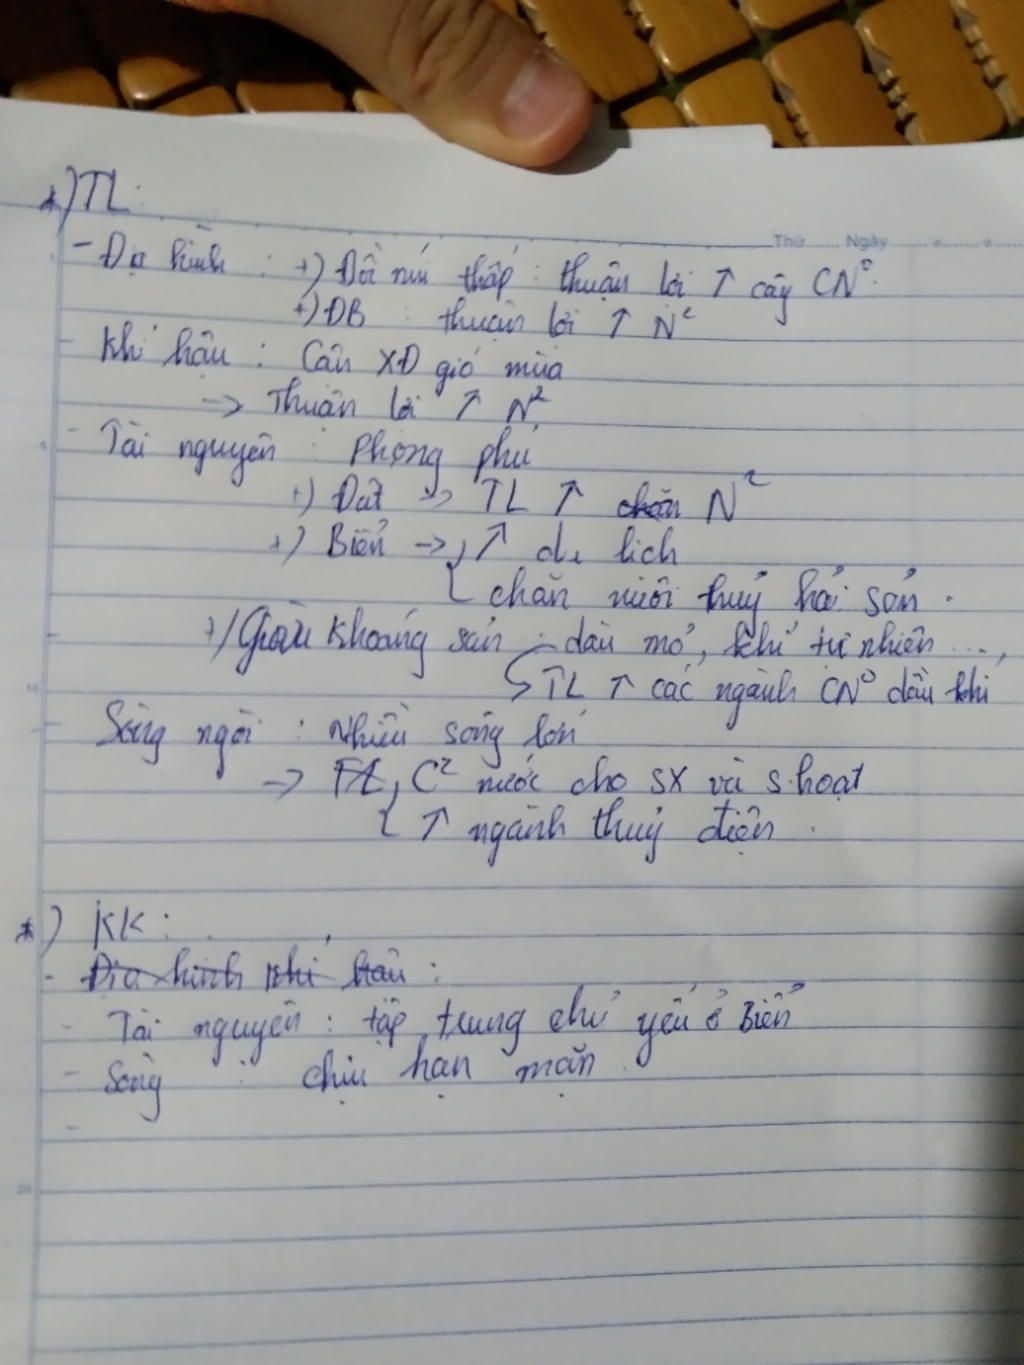 *) TL:
Thứ Ngày
- Địa hình : +) Đồi núi thấp : thuận lợi ↑ cây CN⁰.
+) ĐB : thuận lợi ↑ N²
- Khí hậu : Cận XĐ gió mùa
-> Thuận lợi ↑ N²
- Tài nguyên : Phong phú
+) Đất -> TL ↑ N²
+) Biển -> ↑ du lịch
chăn nuôi thuỷ hải sản.
+) Giàu khoáng sản : dầu mỏ, khí tự nhiên ...,
TL ↑ các ngành CN⁰ dầu khí
Sông ngòi : Nhiều sông lớn
-> C² nước cho SX và s.hoạt
↑ ngành thuỷ điện.
*) KK:
- Địa hình khí hậu :
- Tài nguyên : tập trung chủ yếu ở Biển
- Sông : chịu hạn mặn.
-